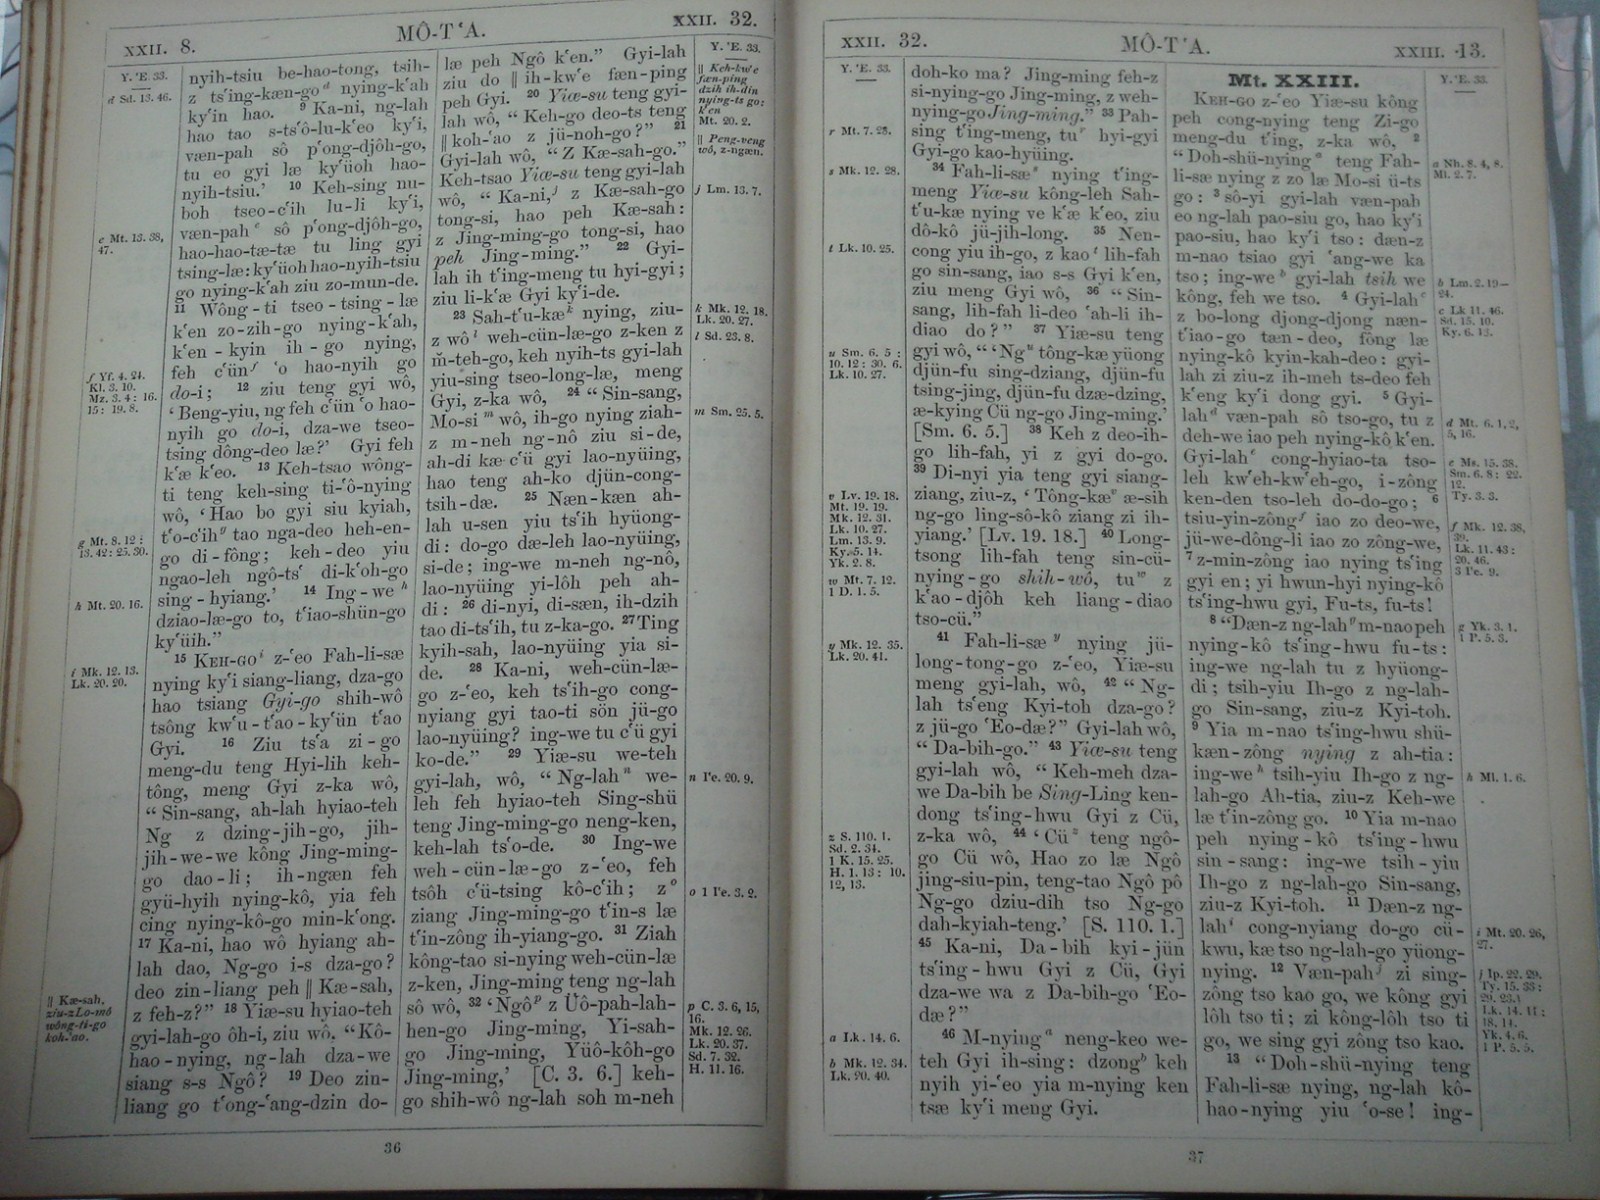 XXII. 8.
MÔ-TʻA.
XXII. 32.
Y. ʻE. 33.
d Sd. 13. 46.
e Mt. 13. 38,
47.
f Yf. 4. 24.
Kl. 3. 10.
Mz. 3. 4 : 16.
15 : 19. 8.
g Mt. 8. 12 :
13. 42 : 25. 30.
h Mt. 20. 16.
i Mk. 12. 13.
Lk. 20. 20.
|| Kæ-sah,
ziu-z Lo-mô
wông-ti-go
koh-ʻao.
nyih-tsiu be-hao-tong, tsih-
z tsʻing-kæn-go d nying-kʻah
kyʻin hao. 9 Ka-ni, ng-lah
hao tao s-tsʻô-lu-kʻeo kyʻi,
væn-pah sô pʻong-djôh-go,
tu eo gyi læ kyʻüoh hao-
nyih-tsiu.’ 10 Keh-sing nu-
boh tseo-cʻih lu-li kyʻi,
væn-pah e sô pʻong-djôh-go,
hao-hao-tæ-tæ tu ling gyi
tsing-læ: kyʻüoh hao-nyih-tsiu
go nying-kʻah ziu zo-mun-de.
11 Wông-ti tseo-tsing-læ
kʻen zo-zih-go nying-kʻah,
kʻen-kyin ih-go nying,
feh cʻün f ʻo hao-nyih go
do-i; 12 ziu teng gyi wô,
‘Beng-yiu, ng feh cʻün ʻo hao-
nyih go do-i, dza-we tseo-
tsing dông-deo læ?’ Gyi feh
kʻæ kʻeo. 13 Keh-tsao wông-
ti teng keh-sing ti-ʻô-nying
wô, ‘Hao bo gyi siu kyiah,
tʻo-cʻih g tao nga-deo heh-en-
go di-fông; keh-deo yiu
ngao-leh ngô-tsʻ di-kʻoh-go
sing-hyiang.’ 14 Ing-we h
dziao-læ-go to, tʻiao-shün-go
kyʻüih.”
15 KEH-GO i z-ʻeo Fah-li-sæ
nying kyʻi siang-liang, dza-go
hao tsiang Gyi-go shih-wô
tsông kwʻu-tʻao-kyʻün tʻao
Gyi. 16 Ziu tsʻa zi-go
meng-du teng Hyi-lih keh-
tông, meng Gyi z-ka wô,
“ Sin-sang, ah-lah hyiao-teh
Ng z dzing-jih-go, jih-
jih-we-we kông Jing-ming-
go dao-li; ih-ngæn feh
gyü-hyih nying-kô, yia feh
cing nying-kô-go min-kʻong.
17 Ka-ni, hao wô hyiang ah-
lah dao, Ng-go i-s dza-go?
deo zin-liang peh || Kæ-sah,
z feh-z?” 18 Yiæ-su hyiao-teh
gyi-lah-go ôh-i, ziu wô, “Kô-
hao-nying, ng-lah dza-we
siang s-s Ngô? 19 Deo zin-
liang go tʻong-ʻang-dzin do-
læ peh Ngô kʻen.” Gyi-lah
ziu do || ih-kwʻe fæn-ping
peh Gyi. 20 Yiæ-su teng gyi-
lah wô, “ Keh-go deo-ts teng
|| koh-ʻao z jü-noh-go?” 21
Gyi-lah wô, “ Z Kæ-sah-go.”
Keh-tsao Yiæ-su teng gyi-lah
wô, “ Ka-ni, j z Kæ-sah-go
tong-si, hao peh Kæ-sah:
z Jing-ming-go tong-si, hao
peh Jing-ming.” 22 Gyi-
lah ih tʻing-meng tu hyi-gyi;
ziu li-kʻæ Gyi kyʻi-de.
23 Sah-tʻu-kæ k nying, ziu-
z wô l weh-cün-læ-go z-ken z
m̄-teh-go, keh nyih-ts gyi-lah
yiu-sing tseo-long-læ, meng
Gyi, z-ka wô, 24 “ Sin-sang,
Mo-si m wô, ih-go nying ziah-
z m-neh ng-nô ziu si-de,
ah-di kæ-cʻü gyi lao-nyüing,
hao teng ah-ko djün-cong-
tsih-dæ. 25 Næn-kæn ah-
lah u-sen yiu tsʻih hyüong-
di: do-go dæ-leh lao-nyüing,
si-de; ing-we m-neh ng-nô,
lao-nyüing yi-lôh peh ah-
di: 26 di-nyi, di-sæn, ih-dzih
tao di-tsʻih, tu z-ka-go. 27 Ting
kyih-sah, lao-nyüing yia si-
de. 28 Ka-ni, weh-cün-læ-
go z-ʻeo, keh tsʻih-go cong-
nyiang gyi tao-ti sön jü-go
lao-nyüing? ing-we tu cʻü gyi
ko-de.” 29 Yiæ-su we-teh
gyi-lah, wô, “ Ng-lah n we-
leh feh hyiao-teh Sing-shü
teng Jing-ming-go neng-ken,
keh-lah tsʻo-de. 30 Ing-we
weh-cün-læ-go z-ʻeo, feh
tsôh cʻü-tsing kô-cʻih; z o
ziang Jing-ming-go tʻin-s læ
tʻin-zông ih-yiang-go. 31 Ziah
kông-tao si-nying weh-cün-læ
z-ken, Jing-ming teng ng-lah
sô wô, 32 ‘Ngô p z Üô-pah-lah-
hen-go Jing-ming, Yi-sah-
go Jing-ming, Yüô-kôh-go
Jing-ming,’ [C. 3. 6.] keh-
go shih-wô ng-lah soh m-neh
Y. ʻE. 33.
|| Keh-kwʻe
fæn-ping
dzih ih-din
nying-ts go:
kʻen
Mt. 20. 2.
|| Peng-veng
wô, z-ngæn.
j Lm. 13. 7.
k Mk. 12. 18.
Lk. 20. 27.
l Sd. 23. 8.
m Sm. 25. 5.
n Iʻe. 20. 9.
o 1 Iʻe. 3. 2.
p C. 3. 6, 15,
16.
Mk. 12. 26.
Lk. 20. 37.
Sd. 7. 32.
H. 11. 16.
36
XXII. 32.
MÔ-TʻA.
XXIII. 13.
Y. ʻE. 33.
r Mt. 7. 28.
s Mk. 12. 28.
t Lk. 10. 25.
u Sm. 6. 5 :
10. 12 : 30. 6.
Lk. 10. 27.
v Lv. 19. 18.
Mt. 19. 19.
Mk. 12. 31.
Lk. 10. 27.
Lm. 13. 9.
Ky. 5. 14.
Yk. 2. 8.
w Mt. 7. 12.
1 D. 1. 5.
y Mk. 12. 35.
Lk. 20. 41.
z S. 110. 1.
Sd. 2. 34.
1 K. 15. 25.
H. 1. 13 : 10.
12, 13.
a Lk. 14. 6.
b Mk. 12. 34.
Lk. 20. 40.
doh-ko ma? Jing-ming feh-z
si-nying-go Jing-ming, z weh-
nying-go Jing-ming.” 33 Pah-
sing tʻing-meng, tu r hyi-gyi
Gyi-go kao-hyüing.
34 Fah-li-sæ s nying tʻing-
meng Yiæ-su kông-leh Sah-
tʻu-kæ nying ve kʻæ kʻeo, ziu
dô-kô jü-jih-long. 35 Nen-
cong yiu ih-go, z kao t lih-fah
go sin-sang, iao s-s Gyi kʻen,
ziu meng Gyi wô, 36 “ Sin-
sang, lih-fah li-deo ʻah-li ih-
diao do?” 37 Yiæ-su teng
gyi wô, “ ‘Ng u tông-kæ yüong
djün-fu sing-dziang, djün-fu
tsing-jing, djün-fu dzæ-dzing,
æ-kying Cü ng-go Jing-ming.’
[Sm. 6. 5.] 38 Keh z deo-ih-
go lih-fah, yi z gyi do-go.
39 Di-nyi yia teng gyi siang-
ziang, ziu-z, ‘ Tông-kæ v æ-sih
ng-go ling-sô-kô ziang zi ih-
yiang.’ [Lv. 19. 18.] 40 Long-
tsong lih-fah teng sin-cü-
nying-go shih-wô, tu w z
kʻao-djôh keh liang-diao
tso-cü.”
41 Fah-li-sæ y nying jü-
long-tong-go z-ʻeo, Yiæ-su
meng gyi-lah, wô, 42 “ Ng-
lah tsʻeng Kyi-toh dza-go?
z jü-go ʻEo-dæ?” Gyi-lah wô,
“ Da-bih-go.” 43 Yiæ-su teng
gyi-lah wô, “ Keh-meh dza-
we Da-bih be Sing-Ling ken-
dong tsʻing-hwu Gyi z Cü,
z-ka wô, 44 ‘ Cü z teng ngô-
go Cü wô, Hao zo læ Ngô
jing-siu-pin, teng-tao Ngô pô
Ng-go dziu-dih tso Ng-go
dah-kyiah-teng.’ [S. 110. 1.]
45 Ka-ni, Da-bih kyi-jün
tsʻing-hwu Gyi z Cü, Gyi
dza-we wa z Da-bih-go ʻEo-
dæ?”
46 M-nying a neng-keo we-
teh Gyi ih-sing: dzong b keh
nyih yi-ʻeo yia m-nying ken
tsæ kyʻi meng Gyi.
Mt. XXIII.
KEH-GO z-ʻeo Yiæ-su kông
peh cong-nying teng Zi-go
meng-du tʻing, z-ka wô, 2
“ Doh-shü-nying a teng Fah-
li-sæ nying z zo læ Mo-si ü-ts
go : 3 sô-yi gyi-lah væn-pah
eo ng-lah pao-siu go, hao kyʻi
pao-siu, hao kyʻi tso : dæn-z
m-nao tsiao gyi ʻang-we ka
tso; ing-we b gyi-lah tsih we
kông, feh we tso. 4 Gyi-lah c
z bo-long djong-djong næn-
tʻiao-go tæn-deo, fông læ
nying-kô kyin-kah-deo: gyi-
lah zi ziu-z ih-meh ts-deo feh
kʻeng kyʻi dong gyi. 5 Gyi-
lah d væn-pah sô tso-go, tu z
deh-we iao peh nying-kô kʻen.
Gyi-lah e cong-hyiao-ta tso-
leh kwʻeh-kwʻeh-go, i-zông
ken-den tso-leh do-do-go; 6
tsiu-yin-zông f iao zo deo-we,
jü-we-dông-li iao zo zông-we,
7 z-min-zông iao nying tsʻing
gyi en; yi hwun-hyi nying-kô
tsʻing-hwu gyi, Fu-ts, fu-ts!
8 “Dæn-z ng-lah g m-nao peh
nying-kô tsʻing-hwu fu-ts:
ing-we ng-lah tu z hyüong-
di; tsih-yiu Ih-go z ng-lah-
go Sin-sang, ziu-z Kyi-toh.
9 Yia m-nao tsʻing-hwu shü-
kæn-zông nying z ah-tia:
ing-we h tsih-yiu Ih-go z ng-
lah-go Ah-tia, ziu-z Keh-we
læ tʻin-zông go. 10 Yia m-nao
peh nying-kô tsʻing-hwu
sin-sang: ing-we tsih-yiu
Ih-go z ng-lah-go Sin-sang,
ziu-z Kyi-toh. 11 Dæn-z ng-
lah i cong-nyiang do-go cü-
kwu, kæ tso ng-lah-go yüong-
nying. 12 Væn-pah j zi sing-
zông tso kao go, we kông gyi
lôh tso ti; zi kông-lôh tso ti
go, we sing gyi zông tso kao.
13 “ Doh-shü-nying teng
Fah-li-sæ nying, ng-lah kô-
hao-nying yiu ʻo-se! ing-
Y. ʻE. 33.
a Nh. 8. 4, 8.
Ml. 2. 7.
b Lm. 2. 19–
24.
c Lk 11. 46.
Sd. 15. 10.
Ky. 6. 13.
d Mt. 6. 1, 2,
5, 16.
e Ms. 15. 38.
Sm. 6. 8 : 22.
12.
Ty. 3. 3.
f Mk. 12. 38,
39.
Lk. 11. 43 :
20. 46.
3 Iʻe. 9.
g Yk. 3. 1.
1 P. 5. 3.
h Ml. 1. 6.
i Mt. 20. 26,
27.
j Ip. 22. 29.
Ty. 15. 33 :
Lk. 14. 11 :
18. 14.
Yk. 4. 6.
1 P. 5. 5.
37